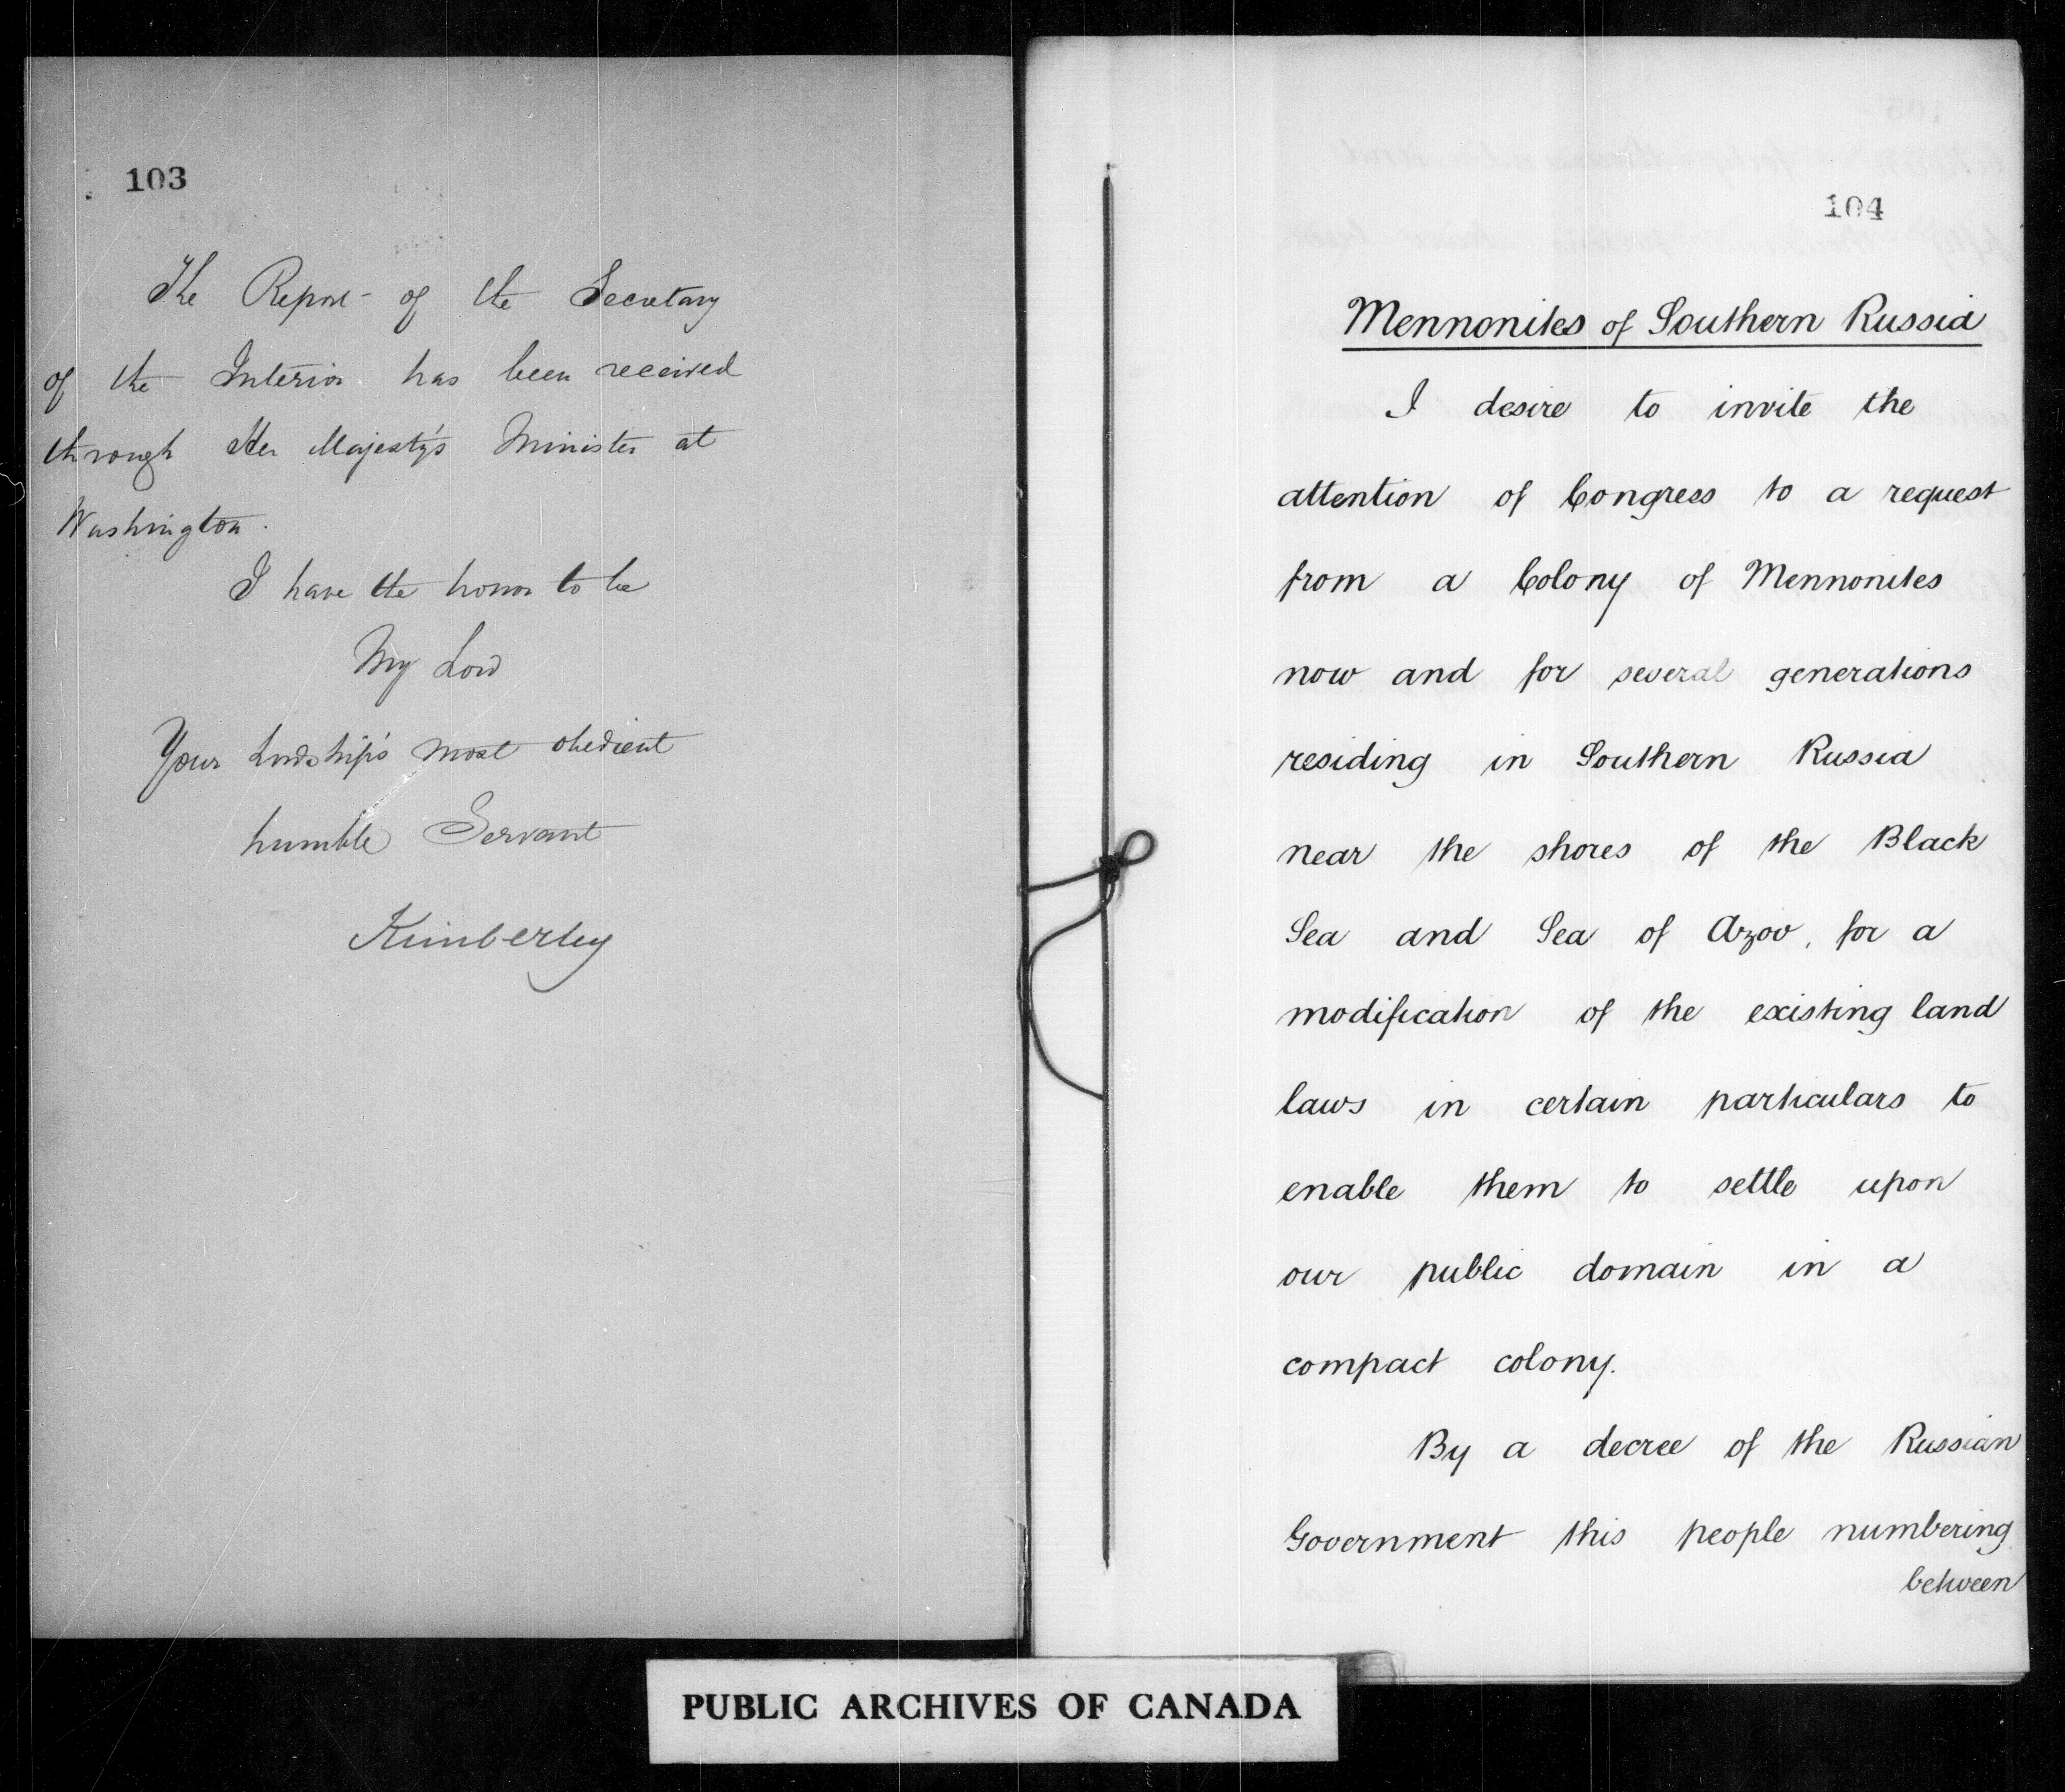 103
The Report of the Secretary
of the Interior has been received
through Her Majesty's Minister at
Washington.
I have the honor to be
My Lord
Your Lordship's most obedient
humble Servant
Kimberley
104
Mennonites of Southern Russia
I desire to invite the
attention of Congress to a request
from a Colony of Mennonites
now and for several generations
residing in Southern Russia
near the shores of the Black
Sea and Sea of Azov, for a
modification of the existing land
laws in certain particulars to
enable them to settle upon
our public domain in a
compact colony.
By a decree of the Russian
Government this people numbering
between
PUBLIC ARCHIVES OF CANADA